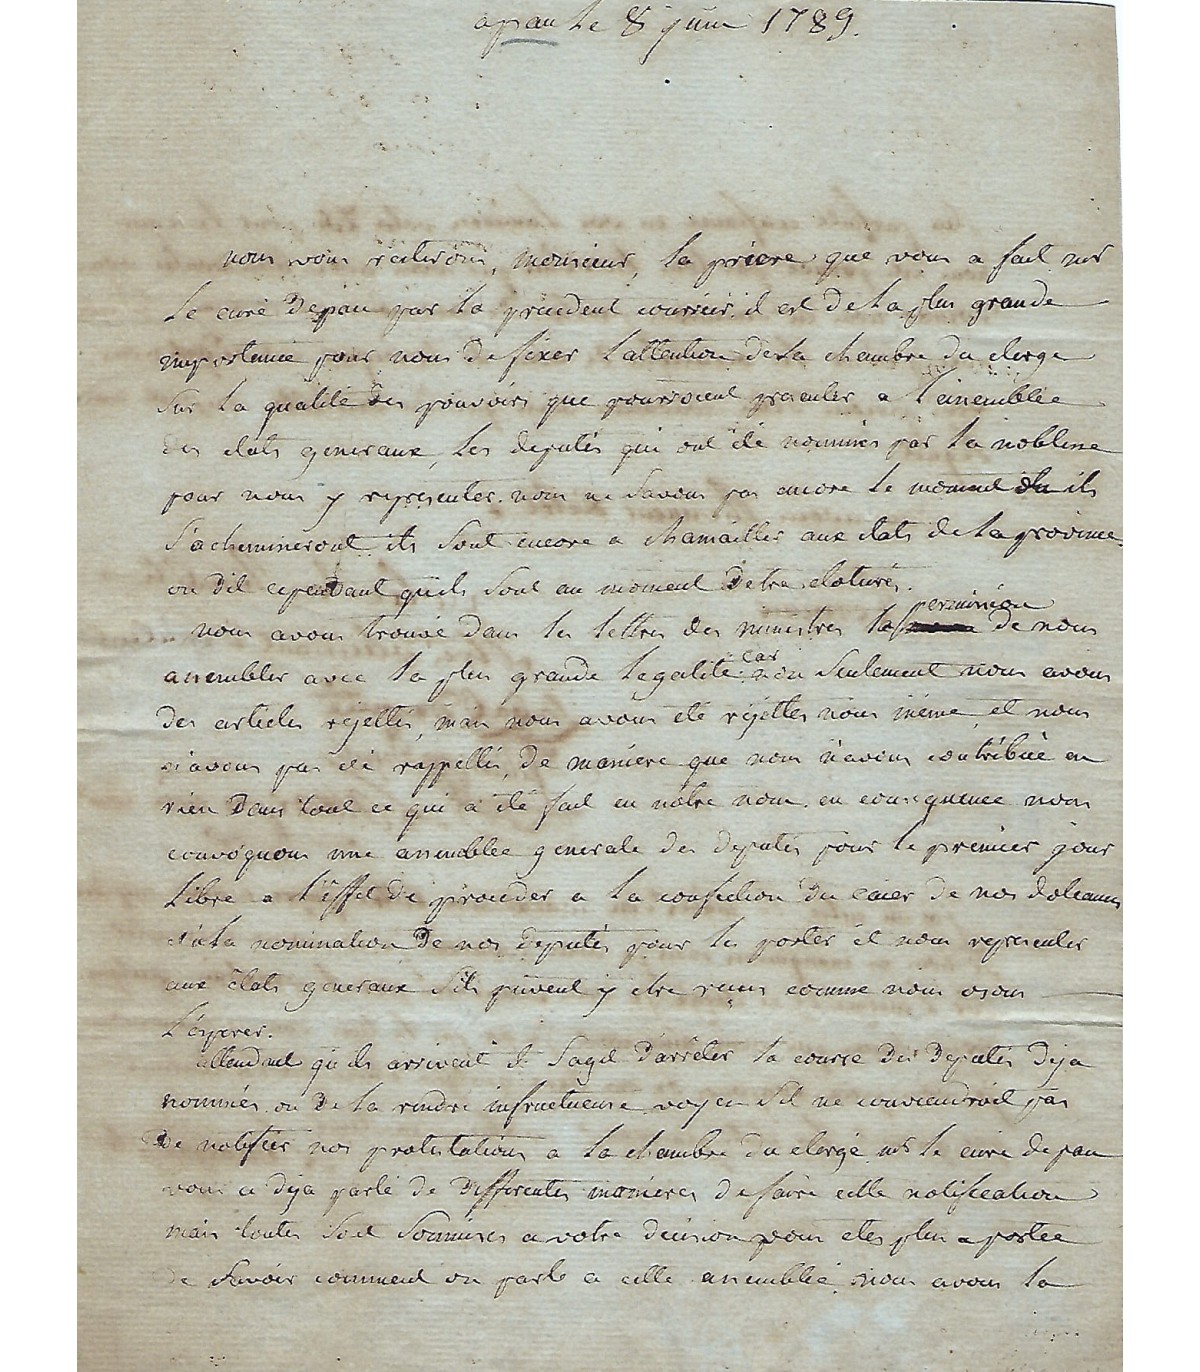 a pau le 8 juin 1789.
nous vous reiterons, monsieur, la priere que vous a fait mr
le curé de pau par le precedent courrier. il est de la plus grande
importance pour nous de fixer l'attention de la chambre du clerge
sur la qualité des pouvoirs que pourroient presenter a l'assemblée
des etats generaux, les deputés qui ont été nommés par la noblesse
pour nous y representer. nous ne savons pas encore le moment ou ils
s'achemineront, ils sont encore a chamailler aux etats de la province.
on dit cependant quils sont au moment detre cloturés.
nous avons trouvé dans les lettres des ministres la permission de nous
assembler avec la plus grande legalité car non seulement nous avons
des articles rejettés, mais nous avons été rejettés nous même, et nous
n'avons pas été rappellés, de maniere que nous n'avons contribué en
rien dans tout ce qui a été fait en nôtre nom. en consequence nous
convoquons une assemblée generale des deputés pour le premier jour
libre a l'effet de proceder a la confection du caier de nos doleances
et a la nomination de nos deputés pour les porter et nous representer
aux états generaux s'ils peuvent y etre reçus comme nous osons
l'esperer.
attendant qu'ils arrivent il s'agit d'arrêter la course des deputés deja
nommés ou de la rendre infructueuse voyes s'il ne conviendroit pas
de notifier nos protestations a la chambre du clergé mr le curé de pau
vous a deja parlé de differentes manieres de faire cette notification
mais toutes sont soumises a votre decision vous etes plus a portée
de savoir comment on parle a cette assemblée. nous avons la